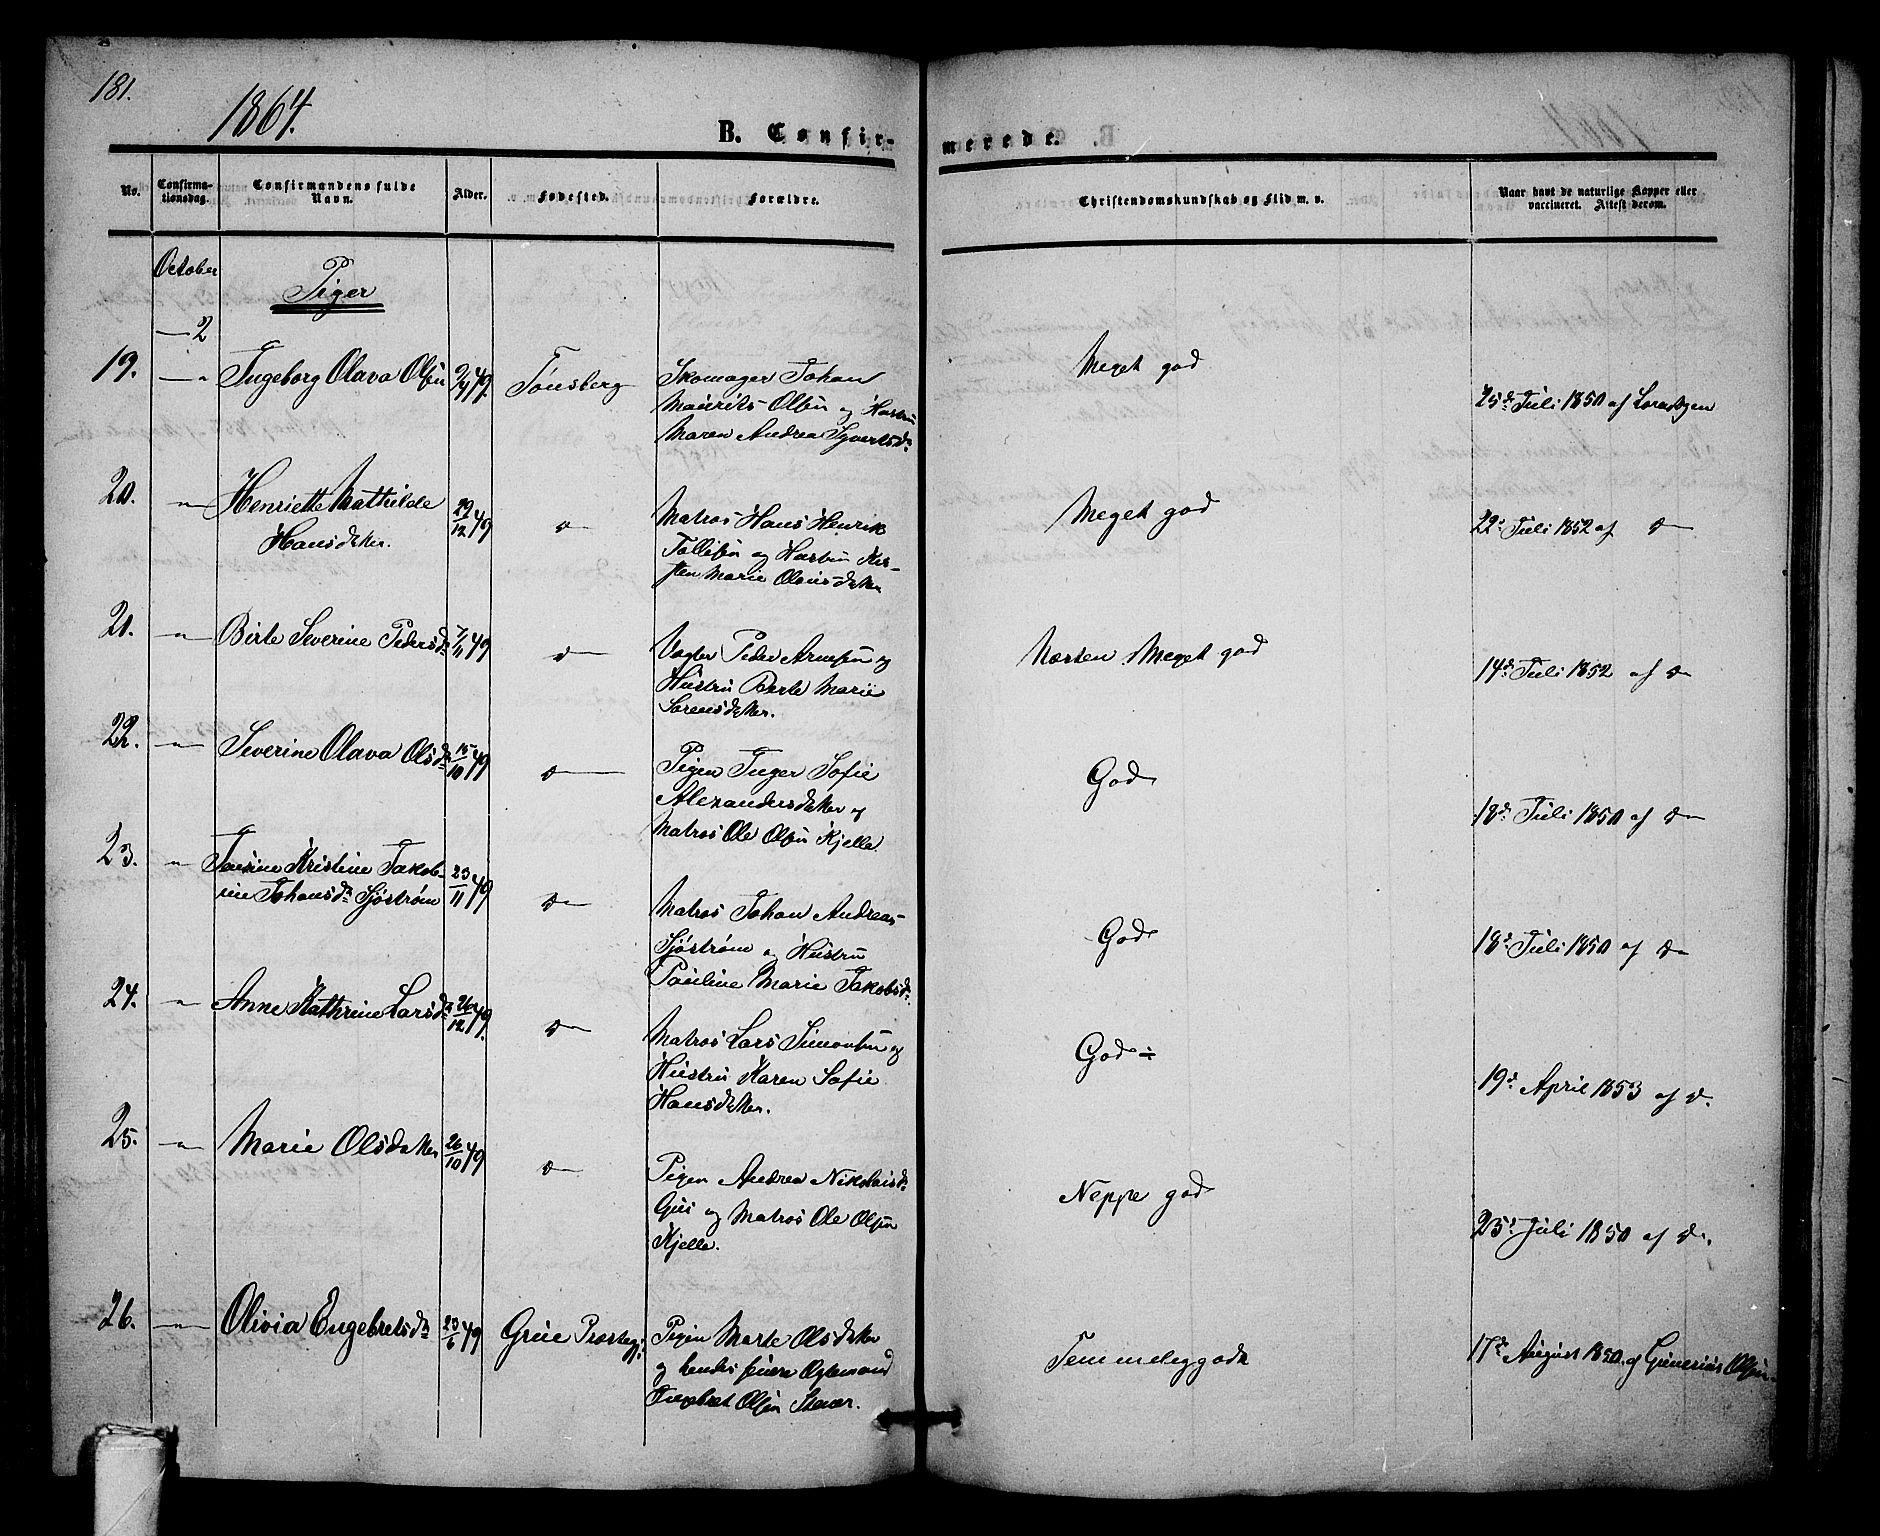 181.
1864.
B. Confir-
merede.
No.
Confirma-
tionsdag.
Confirmandens fulde
Navn.
Alder.
Fødested.
Forældre.
Christendomskundskab og Flid m. v.
Naar havt de naturlige Kopper eller
vaccineret. Attest derom.
October
Piger
— 2
19. — " Ingeborg Olava Olsen 2/4 49. Tønsberg Skomager Johan
Maurits Olsen og Hustru
Maren Andrea Syvertsd.
Meget god
25de Juli 1850 af
20. — " Henriette Mathilde
Hansdatter.
29/12 49 Do Matros Hans Henrik
Tollefsen og Hustru Kir-
sten Marie Olausdatter
Meget god
22de Juli 1852 af Do
21. — " Birte Severine Pedersd. 7/11 49 Do Vægter Peder Arnesen og
Hustru Berte Marie
Sørensdatter.
Næsten Meget god
14de Juli 1852 af Do
22. — " Severine Olava Olsd. 15/10 49 Do Pigen Inger Sofie
Alexandersdatter og
Matros Ole Olsen Kjelle.
God
18de Juli 1850 af Do
23. — " Kristine Jakob-
ine Johansd. Sjøstrøm
23/11 49 Do Matros Johan Andreas
Sjøstrøm og Hustru
Pauline Marie Jakobsd.
God
18de Juli 1850 af Do
24. — " Anne Kathrine Larsd. 26/12 49. Do Matros Lars Simonsen og
Hustru Karen Sofie
Hansdatter.
God ÷
19de April 1853 af Do
25. — " Marie Olsdatter 26/10 49 Do Pigen Andrea Nikolaisd.
og Matros Ole Olsen
Kjelle.
Neppe god
25de Juli 1850 af Do.
26. — " Olivia Engebretsd. 23/6 49 Grue Præstegj. Pigen Marte Olsdatter
og hendes
Engebret Olsen
Temmelig godt
17de August 1850. af Gunerius Olsen.